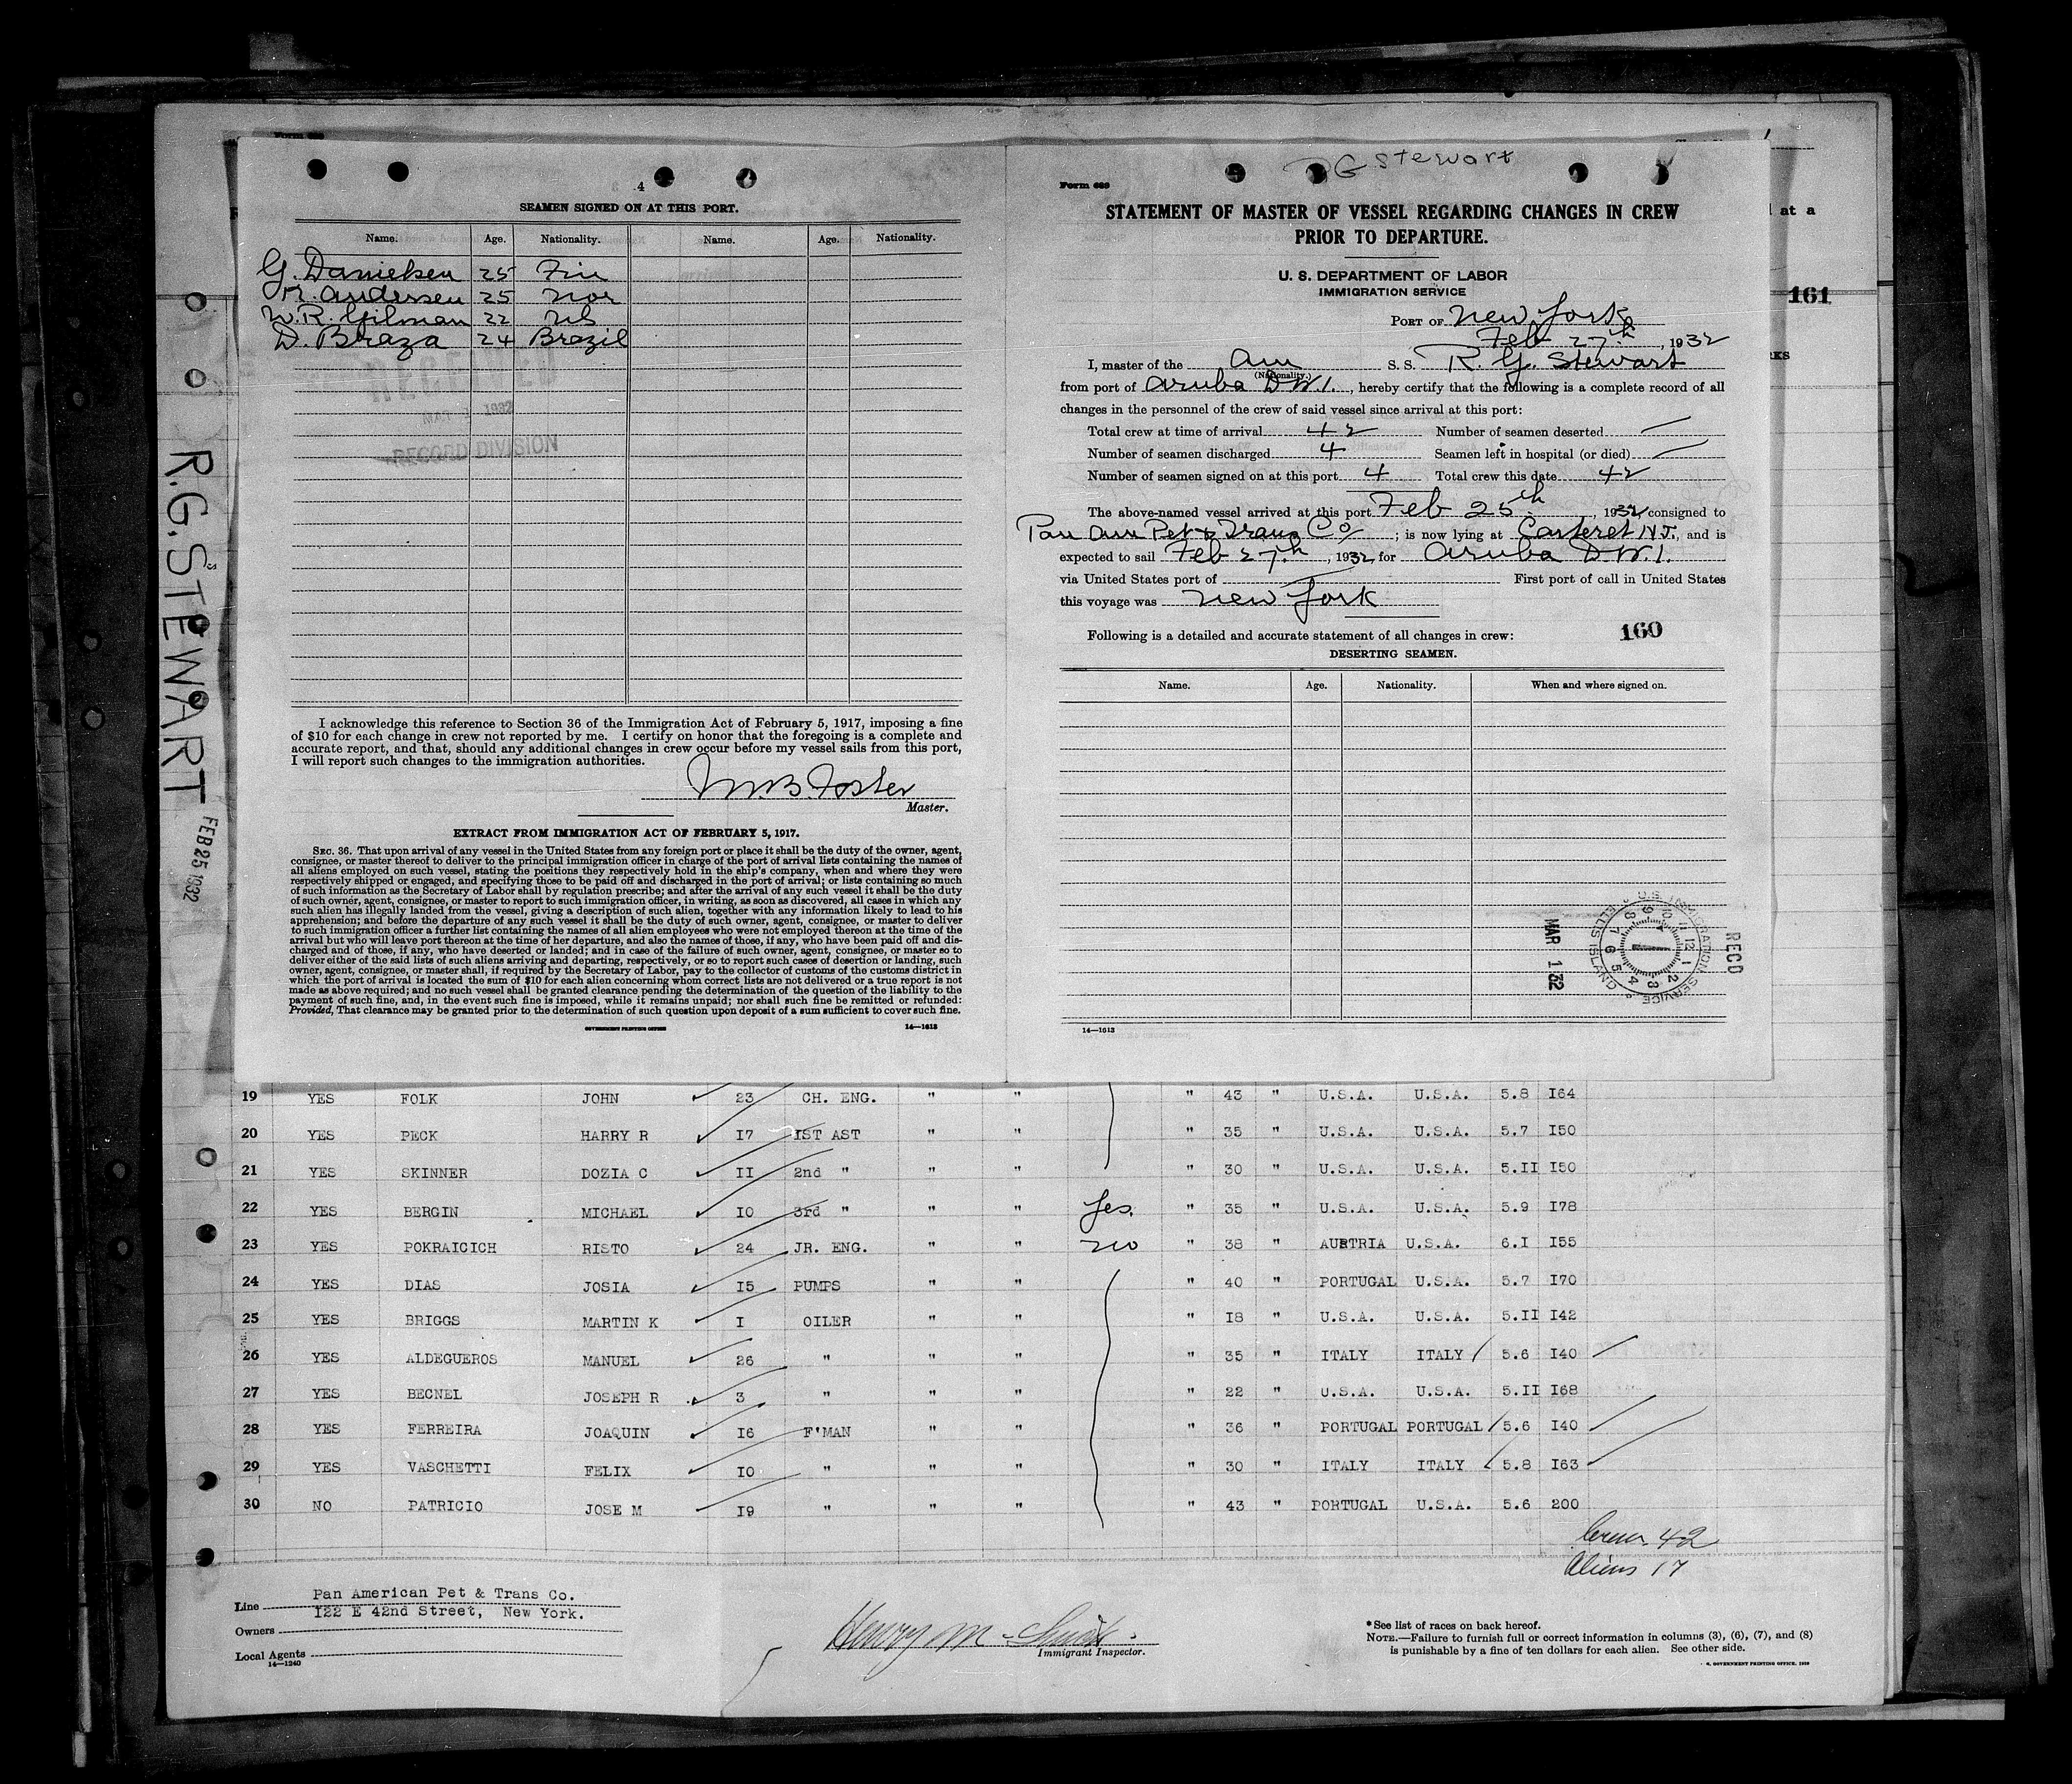 R.G. STEWART FEB 25 1932
4
SEAMEN SIGNED ON AT THIS PORT.
Name. Age. Nationality. Name. Age. Nationality.
G. Danielsen 25 Fin
R. Andersen 25 Nor
W. R. Gilman 22 US
D. Braza 24 Brazil
1932
RECORD DIVISION
I acknowledge this reference to Section 36 of the Immigration Act of February 5, 1917, imposing a fine
of $10 for each change in crew not reported by me. I certify on honor that the foregoing is a complete and
accurate report, and that, should any additional changes in crew occur before my vessel sails from this port,
I will report such changes to the immigration authorities.
M. B. Foster
Master.
EXTRACT FROM IMMIGRATION ACT OF FEBRUARY 5, 1917.
SEC. 36. That upon arrival of any vessel in the United States from any foreign port or place it shall be the duty of the owner, agent,
consignee, or master thereof to deliver to the principal immigration officer in charge of the port of arrival lists containing the names of
all aliens employed on such vessel, stating the positions they respectively hold in the ship's company, when and where they were
respectively shipped or engaged, and specifying those to be paid off and discharged in the port of arrival; or lists containing so much
of such information as the Secretary of Labor shall by regulation prescribe; and after the arrival of any such vessel it shall be the duty
of such owner, agent, consignee, or master to report to such immigration officer, in writing, as soon as discovered, all cases in which any
such alien has illegally landed from the vessel, giving a description of such alien, together with any information likely to lead to his
apprehension; and before the departure of any such vessel it shall be the duty of such owner, agent, consignee, or master to deliver
to such immigration officer a further list containing the names of all alien employees who were not employed thereon at the time of the
arrival but who will leave port thereon at the time of her departure, and also the names of those, if any, who have been paid off and dis-
charged and of those, if any, who have deserted or landed; and in case of the failure of such owner, agent, consignee, or master so to
deliver either of the said lists of such aliens arriving and departing, respectively, or so to report such cases of desertion or landing, such
owner, agent, consignee, or master shall, if required by the Secretary of Labor, pay to the collector of customs of the customs district in
which the port of arrival is located the sum of $10 for each alien concerning whom correct lists are not delivered or a true report is not
made as above required; and no such vessel shall be granted clearance pending the determination of the question of the liability to the
payment of such fine, and, in the event such fine is imposed, while it remains unpaid; nor shall such fine be remitted or refunded:
Provided, That clearance may be granted prior to the determination of such question upon deposit of a sum sufficient to cover such fine.
GOVERNMENT PRINTING OFFICE 14—1613
G Stewart
Form 689
STATEMENT OF MASTER OF VESSEL REGARDING CHANGES IN CREW
PRIOR TO DEPARTURE.
U. S. DEPARTMENT OF LABOR
IMMIGRATION SERVICE
PORT OF New York
Feb 27th, 1932
I, master of the Am S. S. R. G. Stewart
(Nationality.)
from port of Aruba D.W.I., hereby certify that the following is a complete record of all
changes in the personnel of the crew of said vessel since arrival at this port:
Total crew at time of arrival 42 Number of seamen deserted —
Number of seamen discharged 4 Seamen left in hospital (or died) —
Number of seamen signed on at this port 4 Total crew this date 42
The above-named vessel arrived at this port Feb 25th, 1932, consigned to
Pan Am Pet & Trans Co; is now lying at Carteret N.J., and is
expected to sail Feb 27th, 1932, for Aruba D.W.I.
via United States port of First port of call in United States
this voyage was New York
Following is a detailed and accurate statement of all changes in crew: 160
DESERTING SEAMEN.
Name. Age. Nationality. When and where signed on.
RECD
U.S. IMMIGRATION SERVICE ELLIS ISLAND
MAR 1 32
14—1613
at a
161
19 YES FOLK JOHN 23 CH. ENG. " " " 43 " U.S.A. U.S.A. 5.8 I64
20 YES PECK HARRY R I7 IST AST " " " 35 " U.S.A. U.S.A. 5.7 I50
21 YES SKINNER DOZIA C II 2nd " " " " 30 " U.S.A. U.S.A. 5.II I50
22 YES BERGIN MICHAEL IO 3rd " " " Yes. " 35 " U.S.A. U.S.A. 5.9 I78
23 YES POKRAICICH RISTO 24 JR. ENG. " " no " 38 " AUSTRIA U.S.A. 6.I I55
24 YES DIAS JOSIA I5 PUMPS " " " 40 " PORTUGAL U.S.A. 5.7 I70
25 YES BRIGGS MARTIN K I OILER " " " I8 " U.S.A. U.S.A. 5.II I42
26 YES ALDEGUEROS MANUEL 26 " " " " 35 " ITALY ITALY 5.6 I40
27 YES BECNEL JOSEPH R 3 " " " " 22 " U.S.A. U.S.A. 5.II I68
28 YES FERREIRA JOAQUIN I6 F'MAN " " " 36 " PORTUGAL PORTUGAL 5.6 I40
29 YES VASCHETTI FELIX IO " " " " 30 " ITALY ITALY 5.8 I63
30 NO PATRICIO JOSE M I9 " " " " 43 " PORTUGAL U.S.A. 5.6 200
Crew 42
Aliens 17
Line Pan American Pet & Trans Co.
I22 E 42nd Street, New York.
Owners
Local Agents
14—1240
Henry M. Smith
Immigrant Inspector.
*See list of races on back hereof.
NOTE.—Failure to furnish full or correct information in columns (3), (6), (7), and (8)
is punishable by a fine of ten dollars for each alien. See other side.
GOVERNMENT PRINTING OFFICE